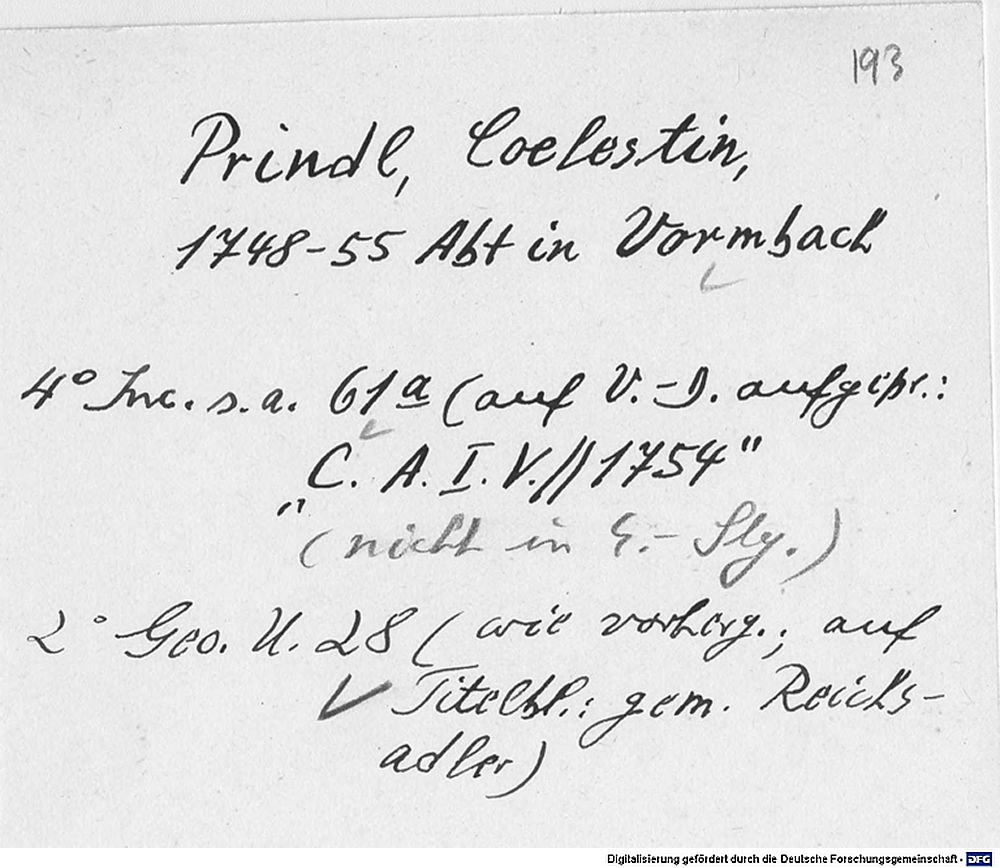 193
Prindl, Coelestin,
1748-55 Abt in Vormbach
4° Inc. s. a. 61a (auf V.-D. aufgepr.:
"C. A. I. V.// 1754"
(nicht in E.- Slg.)
2° Geo. U. 28 (wie vorherg.; auf
Titelbl.: gem. Reichs-
adler)
Digitalisierung gefördert durch die Deutsche Forschungsgemeinschaft - DFG